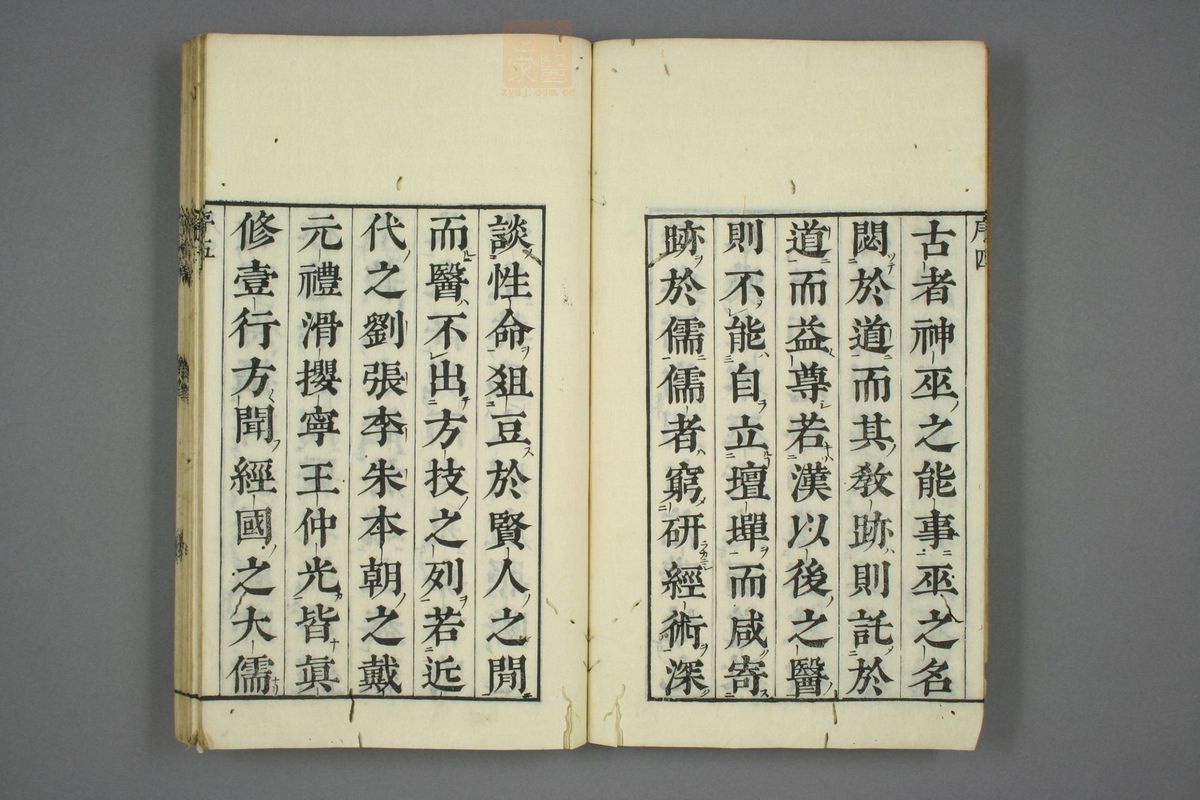 序四
古者神巫之能事巫之名
閎於道而其敎跡則託於
道而益尊若漢以後之醫
則不能自立壇墠而咸寄
跡於儒儒者窮研經術深
談性命俎豆於賢人之閒
而醫不出方技之列若近
代之劉張李朱本朝之戴
元禮滑攖寧王仲光皆眞
修壹行方聞經國之大儒
序五
zysj.com.cn